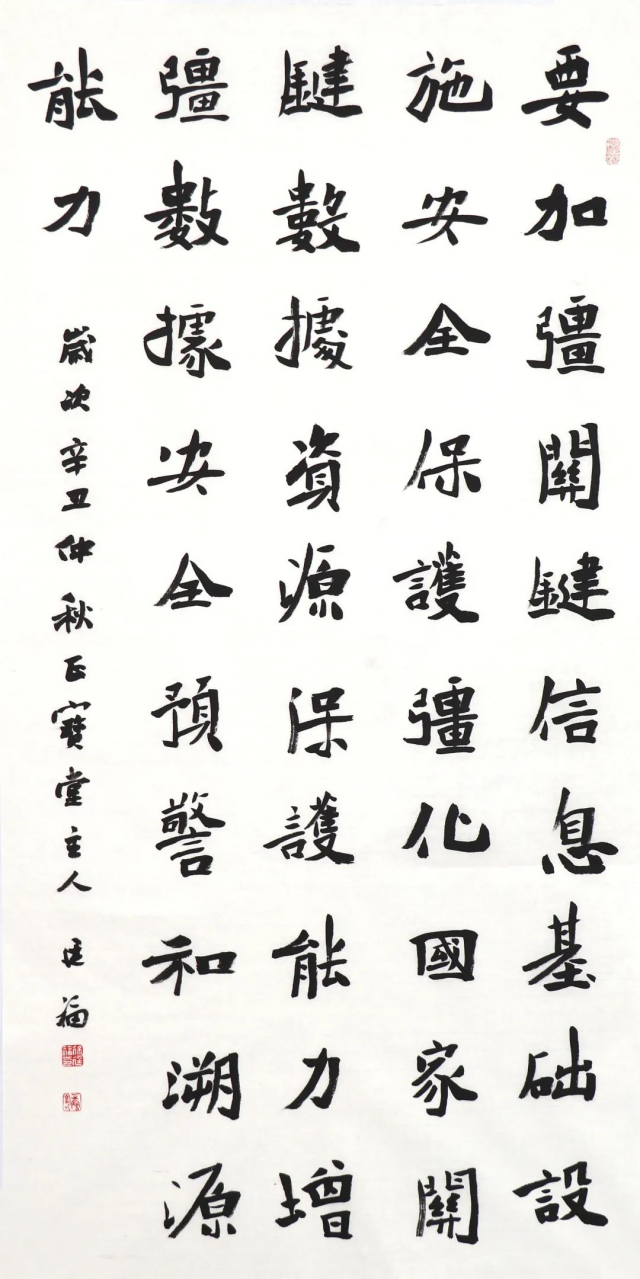 要加彊關鍵信息基础設
施安全保護彊化國家關
鍵數據資源保護能力增
彊數據安全預警和溯源
能力
歲次辛丑仲秋正寶堂主人 福